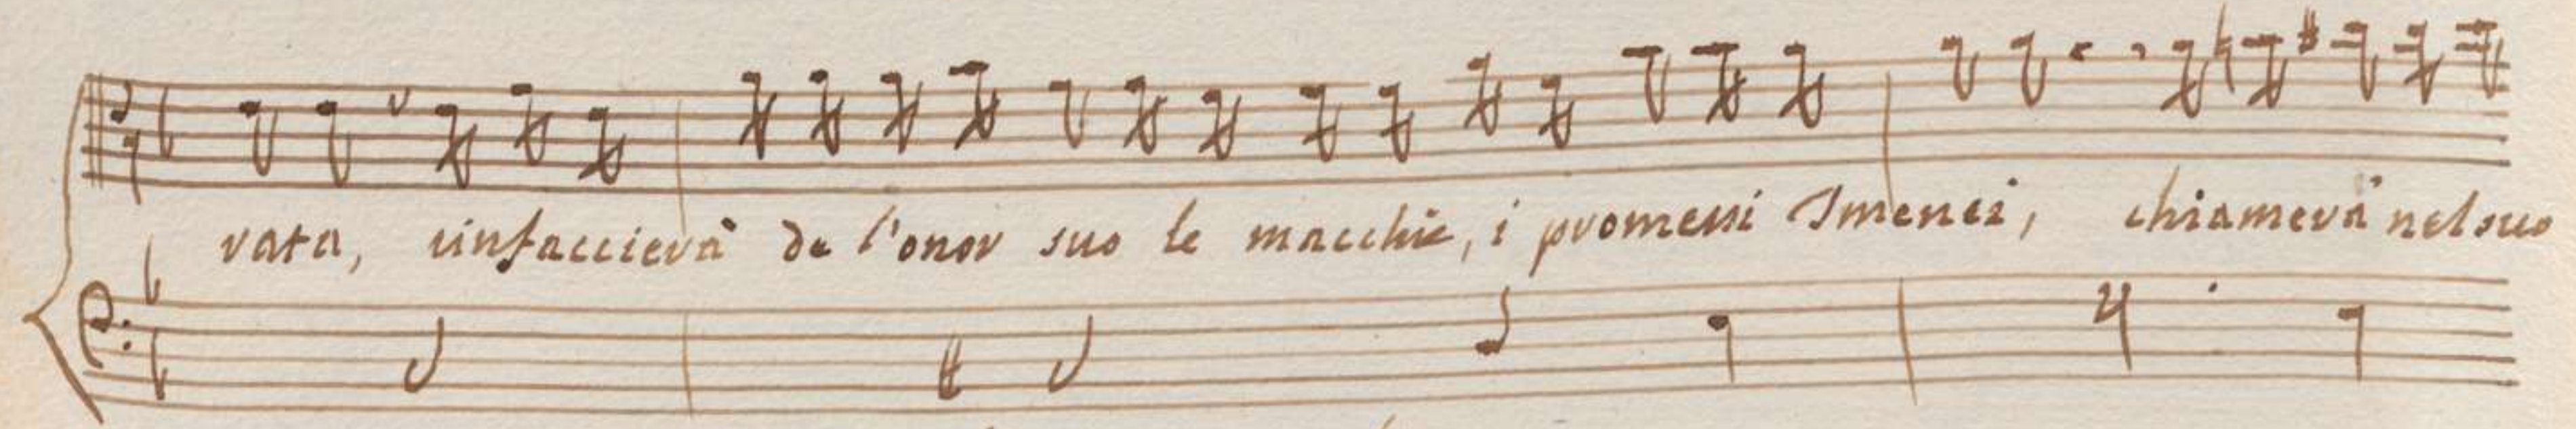 vata, rinfaccierà de l'onor suo le macchie, i promessi Imenei, chiamerà nel suo